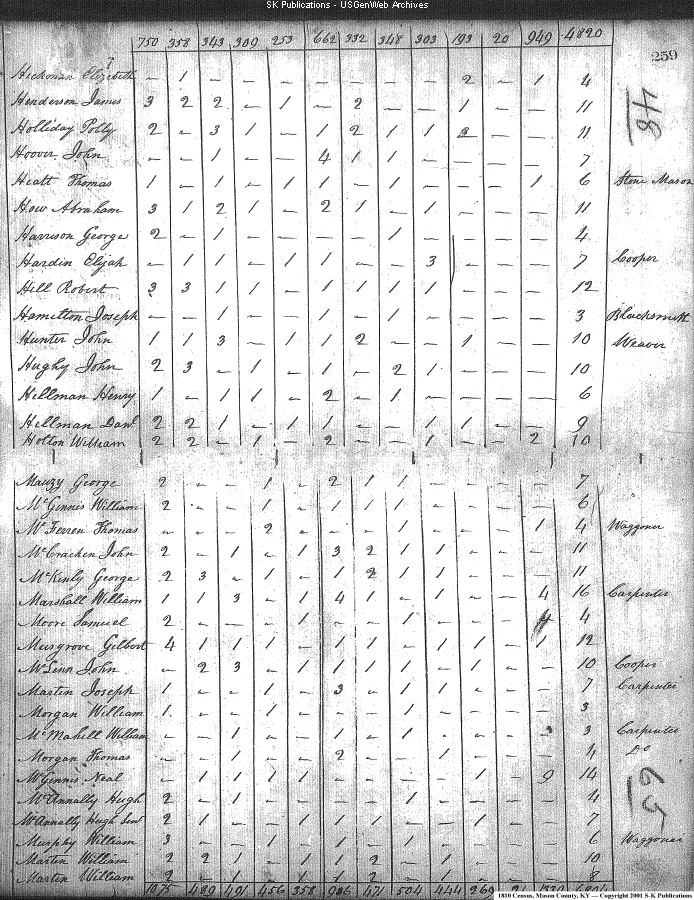 SK Publications - USGenWeb Archives
750 358 343 309 253 662 332 348 303 193 20 949 4820
259
Hickman Elizebeth - 1 - - - - - - - 2 - 1 4
Henderson James 3 2 2 - 1 - 2 - - 1 - - 11
48
Holliday Polly 2 - 3 1 - 1 2 1 1 - - 11
Hoover John - - 1 - - 4 1 1 - - - - 7
Hiatt Thomas 1 - 1 - 1 1 - - - - - 1 6 Stone Mason
How Abraham 3 1 2 1 - 2 1 - 1 - - - 11
Harrison George 2 - 1 - - - - 1 - - - - 4
Hardin Elijah - 1 1 - 1 1 - - 3 - - 7 Cooper
Hill Robert 3 3 1 1 - 1 1 1 1 - - - 12
Hamelton Joseph - - 1 - - 1 - 1 - - - - 3 Blacksmith
Hunter John 1 1 3 - 1 1 2 - - 1 - - 10 Weaver
Hughy John 2 3 - 1 - 1 - 2 1 - - - 10
Hillman Henry 1 - 1 1 - 2 - 1 - - - - 6
Hillman Danl 2 2 1 - 1 1 - - 1 1 - - 9
Holton William 2 2 - 1 - 2 - - 1 - - 2 10
Mauzy George 2 - - - 1 - 2 1 1 - - - - 7
McGinnis William 2 - - - 1 - 1 1 1 - - - - 6
McFerren Thomas - - - - 2 - - - 1 - - - 1 4 Waggoner
McCracken John 2 - 1 - 1 3 2 1 1 - - - 11
McKinly George 2 3 - 1 - 1 2 1 1 - - - 11
Marshall William 1 1 3 - 1 4 1 - 1 - - 4 16 Carpenter
Moore Samuel 2 - - - 1 - - - - - - 4
Musgrove Gilbert 4 1 1 1 - 1 1 - 1 1 - 1 12
McLinn John - 2 3 - 1 1 1 1 - 1 - - 10 Cooper
Martin Joseph 1 - - 1 - 3 - - 1 - - - 7 Carpenter
Morgan William 1 - - - 1 - - 1 - - - - 3
McMahill William - - - - 1 - 1 - - - - 3 Carpenter
Morgan Thomas - - 1 - - 2 - - 1 - - - 4 Do
McGinnis Neal - 1 1 1 1 - - - - 1 - 9 14
65
McAnnally Hugh 2 - 1 - - - - 1 - - - - 4
McAnnally Hugh Senr 2 - 1 - - 1 1 - 1 1 - - 7
Murphy William 3 - - - 1 - - 1 - - - 6 Waggoner
Martin William 2 2 1 - 1 1 2 - - 1 - - 10
Martin William 2 - 1 - 1 1 2 - - 1 - - 8
1075 489 491 456 358 906 471 504 444 269
1810 Census, Mason County, KY — Copyright 2001 S-K Publications